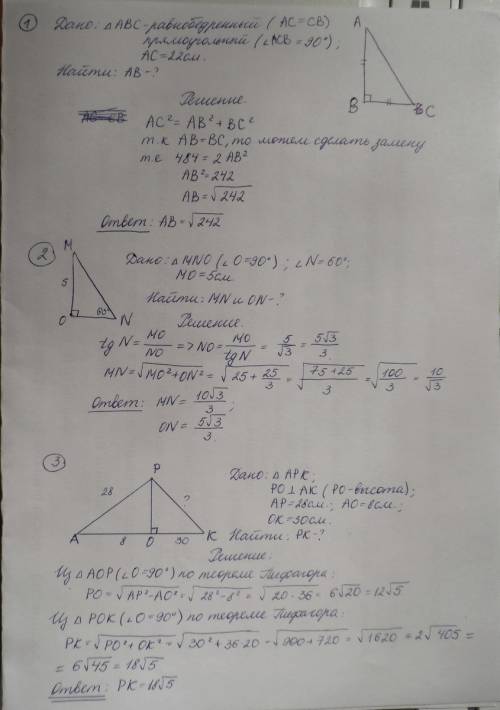 1 Дано: △ABC-равнобедренный (AC=CB)
прямоугольный (∠ACB=90°);
AC=22см.
Найти: AB-?
A
B
C
Решение.
AC=CB
AC²=AB²+BC²
т.к AB=BC, то можем сделать замену
т.е 484=2AB²
AB²=242
AB=√242
Ответ: AB=√242
2
M
5
O
60°
N
Дано: △MNO (∠O=90°); ∠N=60°;
MO=5см.
Найти: MN и ON-?
Решение.
tg N = MO/NO => NO = MO/tgN = 5/√3 = 5√3/3.
MN=√(MO²+ON²) = √(25+25/3) = √((75+25)/3) = √(100/3) = 10/√3
Ответ: MN = 10√3/3;
ON = 5√3/3.
3
P
28
?
A
8
O
30
K
Дано: △APK;
PO⊥AK (PO-высота);
AP=28см.; AO=8см.;
OK=30см.
Найти: PK-?
Решение:
Из △AOP (∠O=90°) по теореме Пифагора:
PO=√(AP²-AO²)=√(28²-8²)=√(20·36)=6√20=12√5
Из △POK (∠O=90°) по теореме Пифагора:
PK=√(PO²+OK²)=√(30²+36·20)=√(900+720)=√1620=2√405=
=6√45=18√5
Ответ: PK=18√5